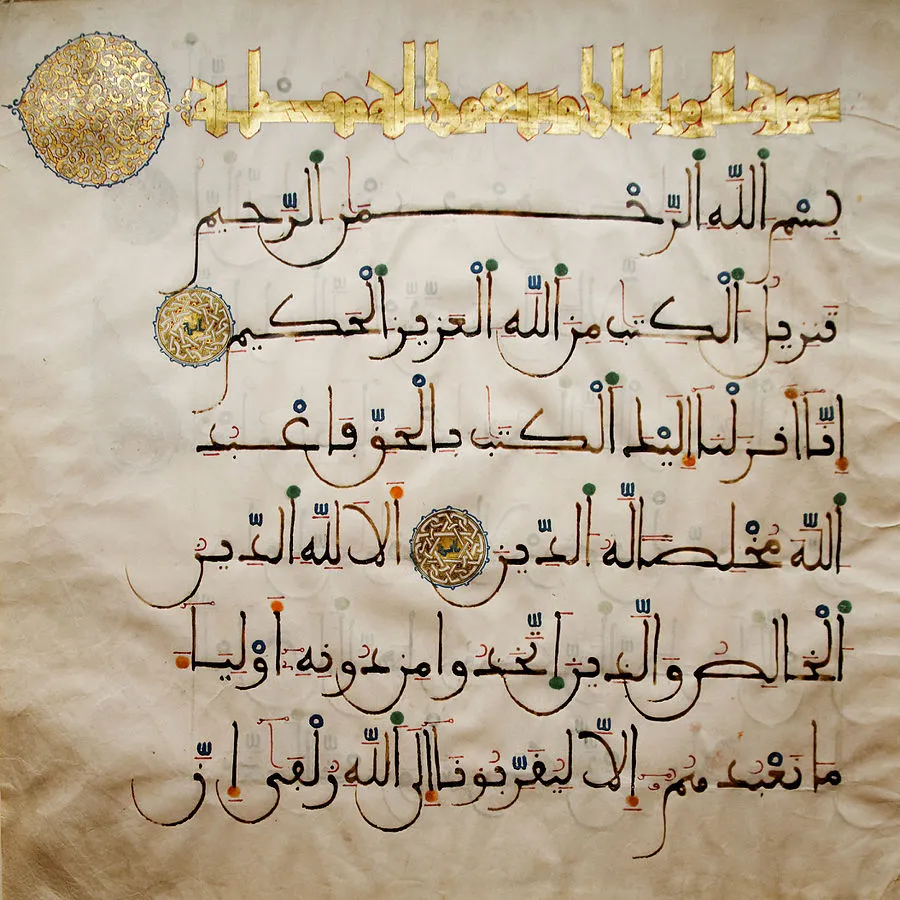 سورة
بسم الله الرحمن الرحيم
تنزيل الكتب من الله العزيز الحكيم
إنا أنزلنا إليك الكتب بالحق فاعبد
الله مخلصا له الدين ألا لله الدين
الخالص والذين اتخذوا من دونه أولياء
ما نعبدهم إلا ليقربونا إلى الله زلفى إن